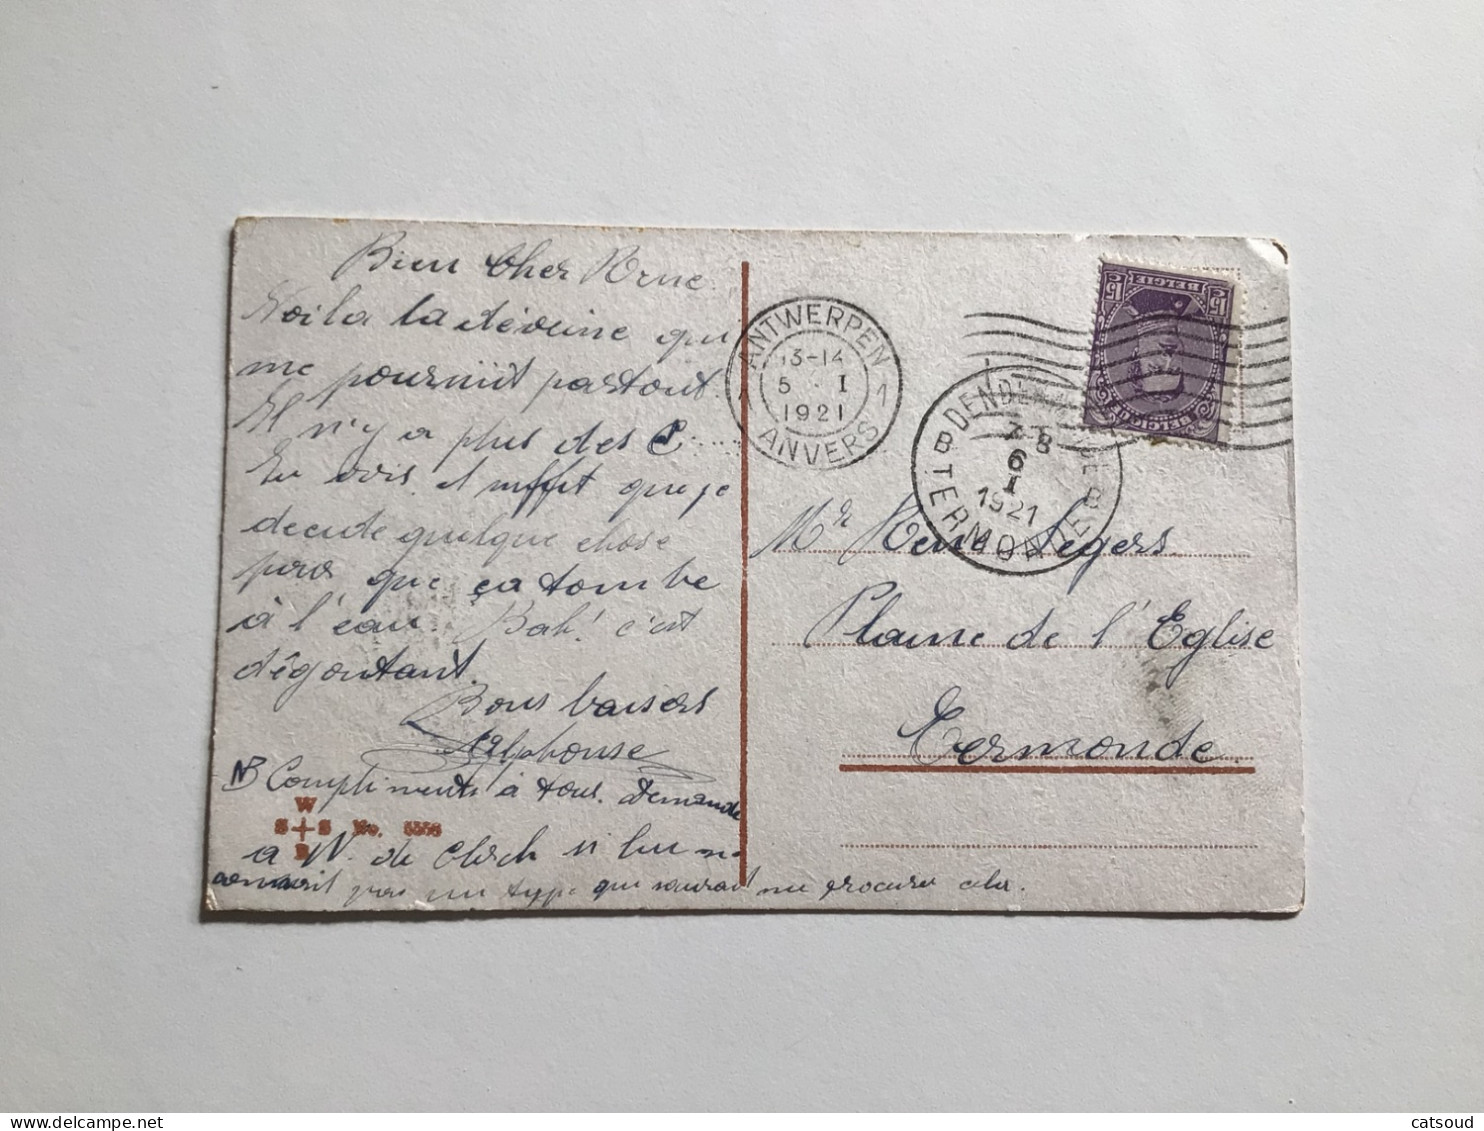 Bien Cher Rene
Voila la déveine qui
me poursuit partout.
Il n'y a plus des
Tu vois, il suffit que je
decide quelque chose
pour que ça tombe
à l'eau Bah! c'est
dégoutant.
Bons baisers
Alphonse
NB Compliments à tous. Demande
W
S S No. 5558
B
a W. de Clerck si lui ne
connait pas un type qui saurait me procurer cela.
ANTWERPEN
13-14
5 I
1921
1 1
ANVERS
DENDERMONDE
7-8
6
I
1921
B TERMONDE B
15 15
BELGIE
BELGIQUE
Mr Rene Segers
Plaine de l'Eglise
Termonde
catsoud
delcampe.net